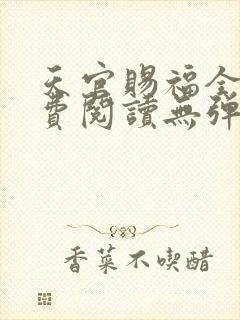 天官賜福全
費閱讀無彈
香菜不喫醋